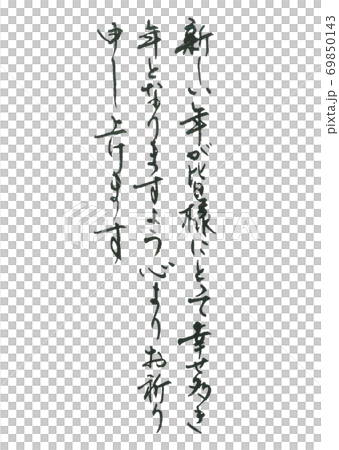 新しい年が皆様にとって幸せ多き
年となりますよう心よりお祈り
申し上げます
PIXTA
pixta.jp - 69850143